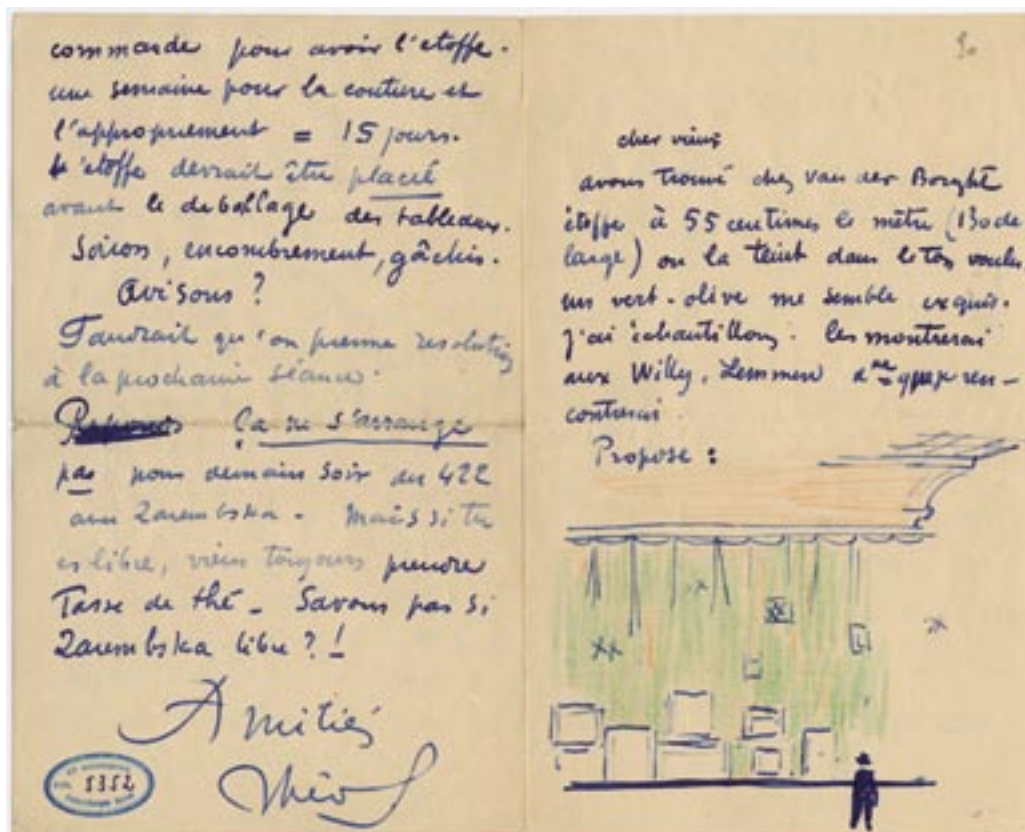 commande pour avoir l'etoffe.
une semaine pour la couture et
l'appropriement = 15 jours.
L'etoffe devrait être placée
avant le deballage des tableaux.
Sinon, encombrement, gâchis.
Avisons ?
Faudrait qu'on prenne resolution
à la prochaine séance.
Ça ne s'arrange
pas pour demain soir au 422
avec Zarembska. Mais si tu
es libre, viens toujours prendre
Tasse de thé _ Savons pas si
Zarembska libre ? !
Amitiés
Théo
5352
cher vieux
avons trouvé chez Van der Borght
étoffe à 55 centimes le mètre (130 de
large) on la teint dans le ton voulu
un vert-olive me semble exquis.
j'ai échantillons. les montrerai
aux Willy, Lemmen ren-
contrerai.
Propose :